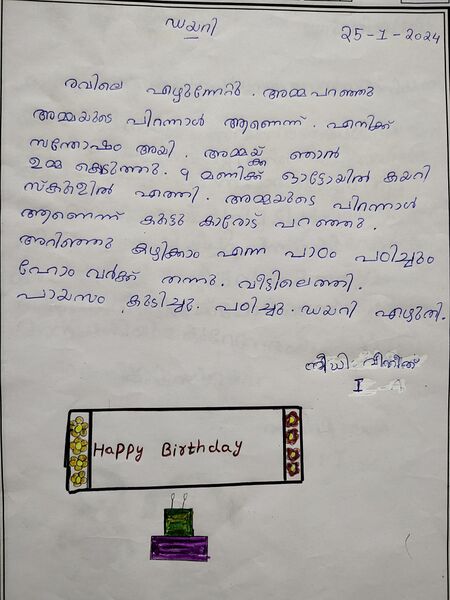 ഡയറി
25-1-2024
രവിലെ എഴുന്നേറ്റു. അമ്മ പറഞ്ഞു
അമ്മയുടെ പിറന്നാൾ ആണെന്ന്. എനിക്ക്
സന്തോഷം അയി. അമ്മയ്ക്ക് ഞാൻ
ഉമ്മ കൊടുത്തു. 9 മണിക്ക് ഓട്ടോയിൽ കയറി
സ്കൂളിൽ എത്തി. അമ്മയുടെ പിറന്നാൾ
ആണെന്ന് കൂട്ടു കാരോട് പറഞ്ഞു.
അറിഞ്ഞു കഴിക്കാം എന്ന പാഠം പഠിച്ചും
ഹോം വർക്ക് തന്നു. വീട്ടിലെത്തി.
പായസം കുടിച്ചു. പഠിച്ചു. ഡയറി എഴുതി.
I - A
Happy Birthday